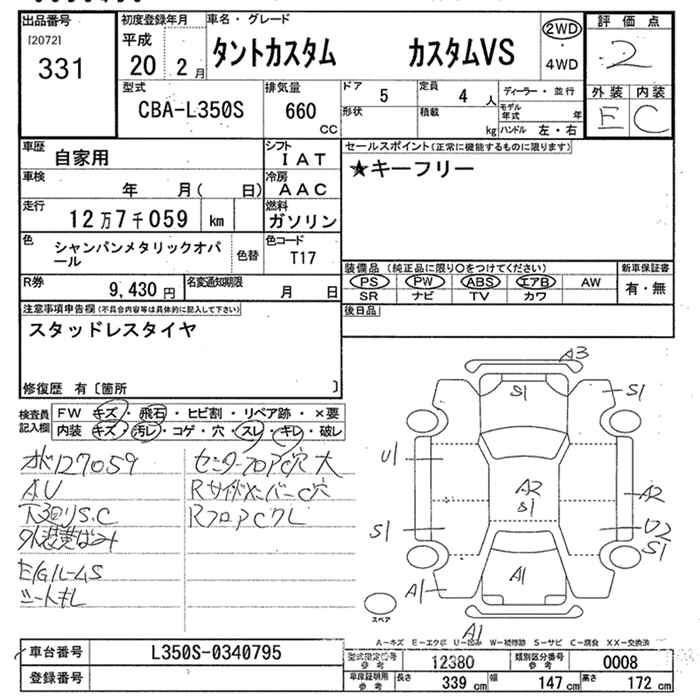 出品番号
[2072]
331
初度登録年月
平成
20 2月
車名・グレード
タントカスタム カスタムVS
2WD
・
4WD
評価点
2
外装 内装
E C
型式
CBA-L350S
排気量
660
CC
ドア 5
定員 4 人
ディーラー・並行
形状
積載 kg
モデル年式 年
ハンドル 左・右
車歴 自家用
シフト IAT
セールスポイント(正常に機能するものに限ります)
★キーフリー
車検 年 月( 日)
冷房 AAC
走行 12万7千059 km
燃料 ガソリン
色 シャンパンメタリックオパール
色替
色コード T17
装備品 (純正品に限り○をつけてください)
新車保証書
PS PW ABS エアB AW
有・無
SR ナビ TV カワ
R券 9,430円
名変通知期限 月 日
後日品
注意事項申告欄(不具合内容等は具体的に記入して下さい)
スタッドレスタイヤ
修復歴 有〔箇所 〕
検査員記入欄
FW キズ・飛石・ヒビ割・リペア跡・×要
内装 キズ・汚レ・コゲ・穴・スレ・キレ・破レ
メ127059
AU
下回りS.C
外装黄ばみ
E/GルームS
シートキレ
センターフロアC穴大
RサイドメンバーC穴
RフロアCクレ
A3
S1
S1
U1
A2
S1
A2
S1
U2
S1
A1
A1
A1
スペア
A-キズ E-エクボ U-凹み W-補修跡 S-サビ C-腐食 XX-交換済
車台番号 L350S-0340795
型式指定番号 参考 12380
類別区分番号 参考 0008
登録番号
車庫証明用 参考
長さ 339 cm
幅 147 cm
高さ 172 cm